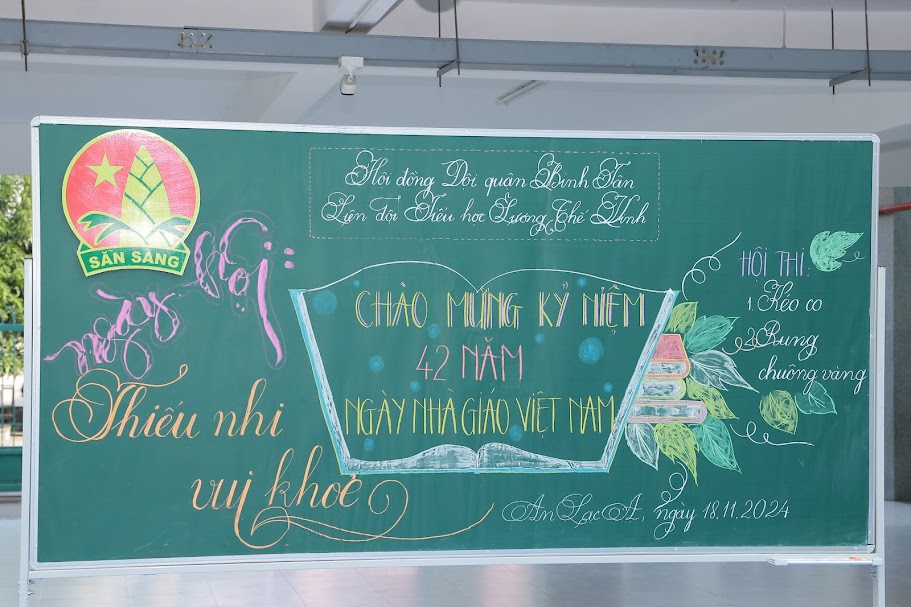 SẴN SÀNG
Hội đồng Đội quận Bình Tân
Liên đội Tiểu học Lương Thế Vinh
ngày hội:
Thiếu nhi
vui khoẻ
CHÀO MỪNG KỶ NIỆM
42 NĂM
NGÀY NHÀ GIÁO VIỆT NAM
HỘI THI:
1. Kéo co
2. Rung
chuông vàng
An Lạc A, ngày 18.11.2024